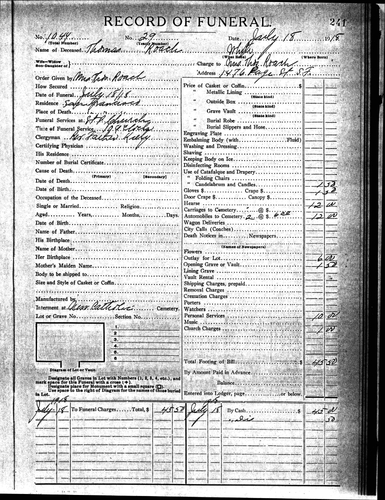 RECORD OF FUNERAL.
241
No. 1044 No. 29 Date July 18 1918
(Total Number) (Yearly Number)
Name of Deceased Thomas Roach White
Charge to Mrs. Roach
Address 1476 Page St. S.F.
Order Given by Mrs. Roach
How Secured
Date of Funeral July 18/18
Residence San Francisco
Place of Death
Funeral Services at Church
Time of Funeral Service
Clergyman Rev. Father
Certifying Physician
His Residence
Number of Burial Certificate
Cause of Death
Date of Death
Date of Birth
Occupation of the Deceased
Single or Married Religion
Aged Years, Months, Days.
Name of Father
His Birthplace
Name of Mother
Her Birthplace
Mother's Maiden Name
Body to be shipped to
Size and Style of Casket or Coffin
Manufactured by
Interment at Catholic Cemetery.
Lot or Grave No. Section No.
1
2
3
4
5
Diagram of Lot or Vault
Designate all Graves in Lot with Numbers (1, 2, 3, 4, etc.), and
mark space for this Funeral with a cross (+).
Designate place for Monument with a small square (□).
Use space in the right of Diagram for the names of those buried
in Lot.
Price of Casket or Coffin
" Metallic Lining
" Outside Box
" Grave Vault
" Burial Robe
" Burial Slippers and Hose
Engraving Plate
Embalming Body (with Fluid)
Washing and Dressing
Shaving
Keeping Body on Ice
Disinfecting Rooms
Use of Catafalque and Drapery
" Folding Chairs
" Candelabrum and Candles
Gloves $ Crape $
Door Crape Canopy
Hearse
Carriages to Cemetery @ $
Automobiles to Cemetery 2 @ $ 6.00
Wagon Deliveries
City Calls (Coaches)
Death Notices in Newspapers.
(Names of Newspapers)
Flowers
Outlay for Lot
Opening Grave or Vault
Lining Grave
Vault Rental
Shipping Charges, prepaid
Removal Charges
Cremation Charges
Porters
Watchers
Personal Services
Music
Church Charges
Total Footing of Bill 45 50
By Amount Paid in Advance
Balance
Entered into Ledger, page or below.
July 18 To Funeral Charges Total, $ 45 50
July 18 By Cash